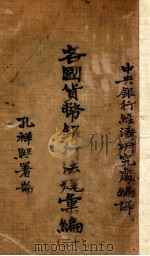 中央銀行經濟研究處編譯
各國貨幣銀行法規彙編
(三十)
孔祥熙署耑